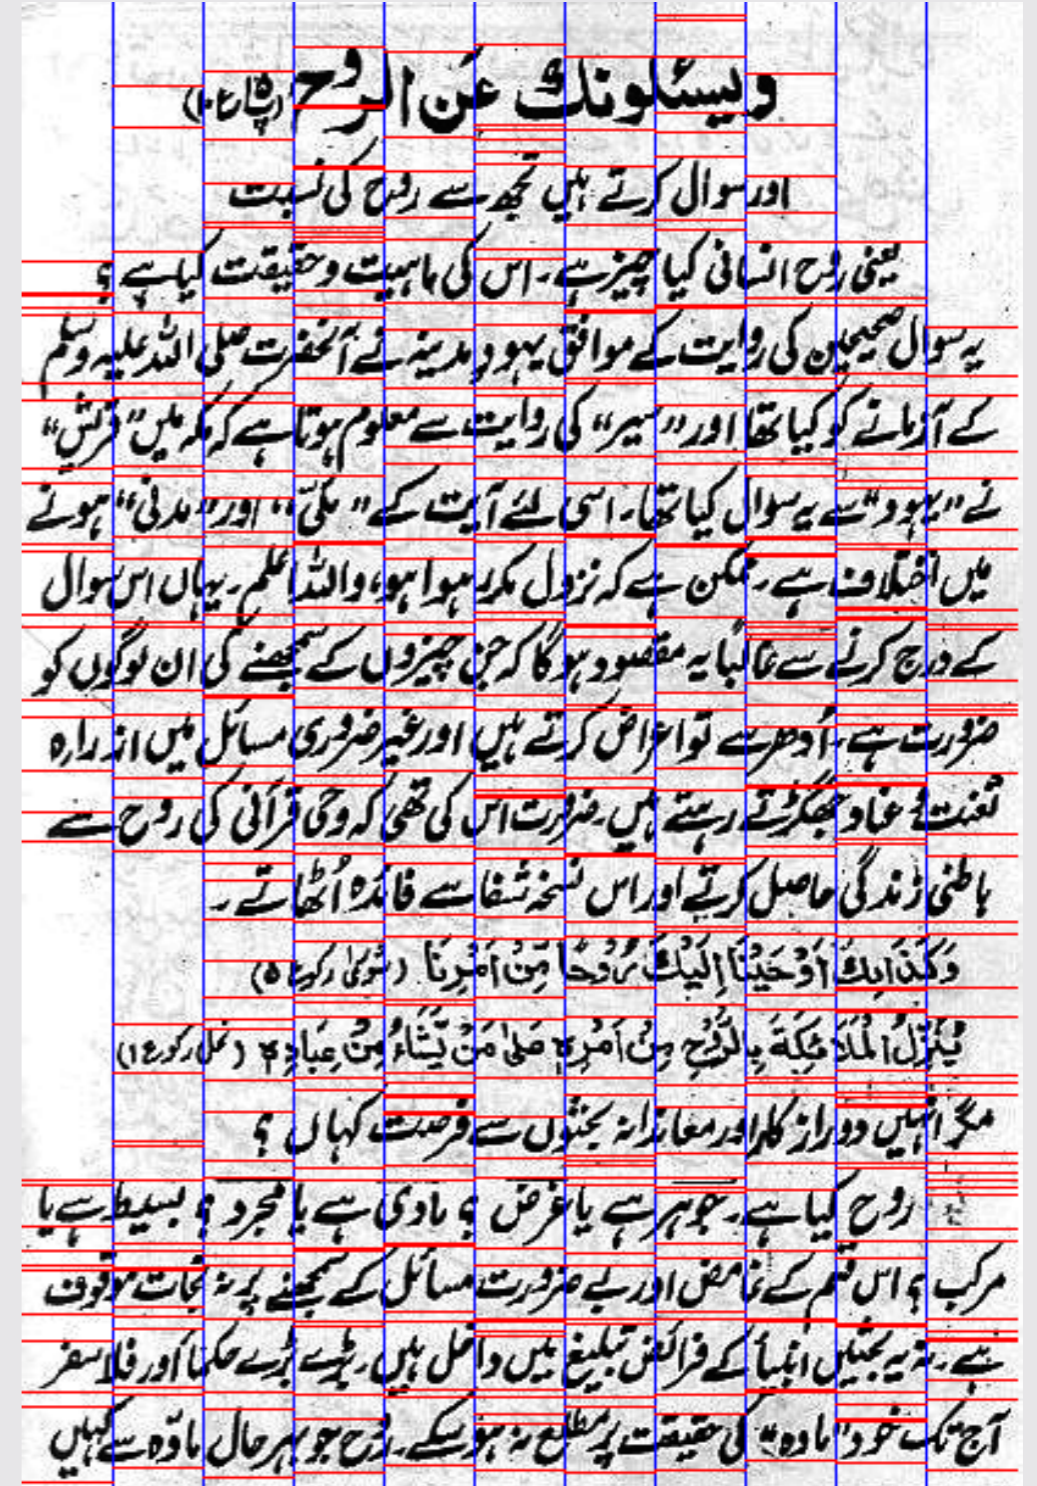 ویسئلونك عن الروح (پ۱۵ ع۱۰)
اور سوال کرتے ہیں تجھ سے روح کی نسبت
یعنی روح انسانی کیا چیز ہے۔ اس کی ماہیت و حقیقت کیا ہے ؟
یہ سوال صحیحین کی روایت کے موافق یہود مدینہ نے آنحضرت صلی اللہ علیہ وسلم
کے آزمانے کو کیا تھا اور "سیر" کی روایت سے معلوم ہوتا ہے کہ مکہ میں "قریش"
نے "یہود" سے یہ سوال کیا تھا۔ اسی لئے آیت کے "مکیّ" اور "مدنی" ہونے
میں اختلاف ہے۔ ممکن ہے کہ نزول مکرر ہوا ہو، واللہ اعلم۔ یہاں اس سوال
کے درج کرنے سے غالباً یہ مقصود ہوگا کہ جن چیزوں کے سمجھنے کی ان لوگوں کو
ضرورت ہے۔ اُدھر سے تو اعراض کرتے ہیں اور غیر ضروری مسائل میں از راہ
تعنت و عناد جھگڑتے رہتے ہیں۔ ضرورت اس کی تھی کہ وحی قرآنی کی روح سے
باطنی زندگی حاصل کرتے اور اس نسخہ شفا سے فائدہ اُٹھاتے۔
وَكَذَالِكَ اَوْحَيْنَا اِلَيْكَ رُوْحًا مِّنْ اَمْرِنَا (شوریٰ رکوع ۵)
يُنَزِّلُ الْمَلَائِكَةَ بِالرُّوْحِ مِنْ اَمْرِهٖ عَلٰى مَنْ يَّشَاءُ مِنْ عِبَادِهٖ (نحل رکوع ۱)
مگر انہیں دوراز کار اور معاندانہ بحثوں سے فرصت کہاں ؟
روح کیا ہے۔ جوہر ہے یا عرض ؟ مادی ہے یا مجرد ؟ بسیط ہے یا
مرکب ؟ اس قسم کے غامض اور بے ضرورت مسائل کے سمجھنے پر نہ نجات موقوف
ہے۔ نہ یہ بحثیں انبیأ کے فرائض تبلیغ میں داخل ہیں۔ بڑے بڑے حکما اور فلاسفر
آج تک خود "مادہ" کی حقیقت پر مطلع نہ ہو سکے۔ روح جو بہرحال مادّہ سے کہیں